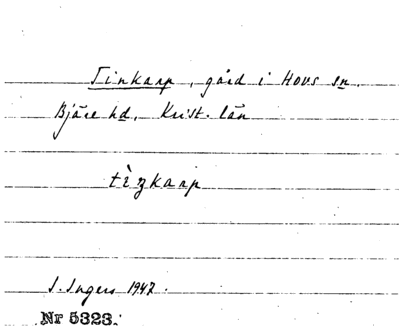 Tinkarp, gård i Hovs sn.
Bjäre hd, Krist. län
tìŋkarp
I. Ingers 1947.
Nr 5323.